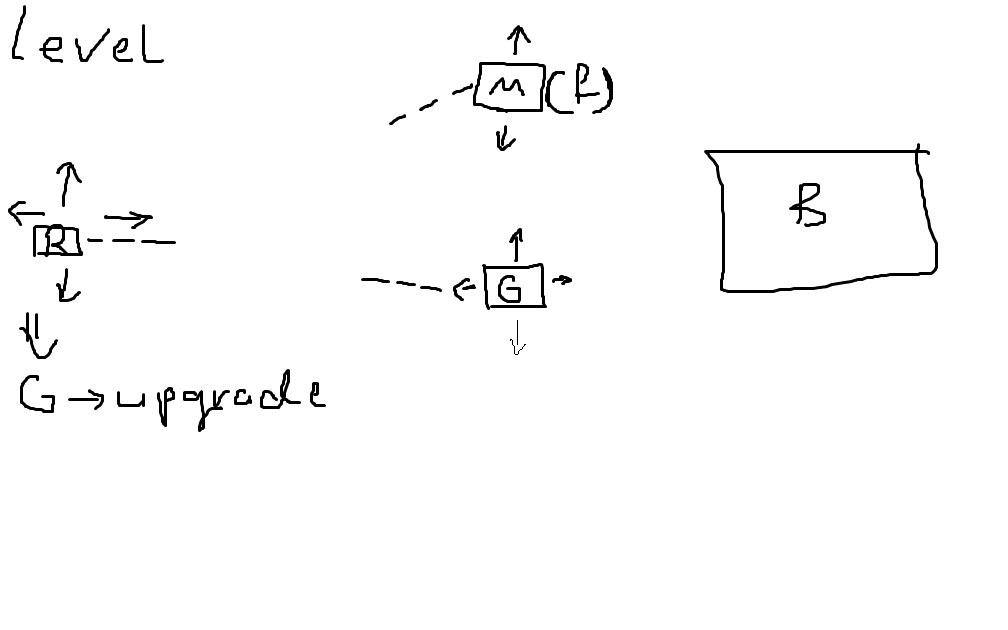 level
M (R)
B
R
G
G → upgrade